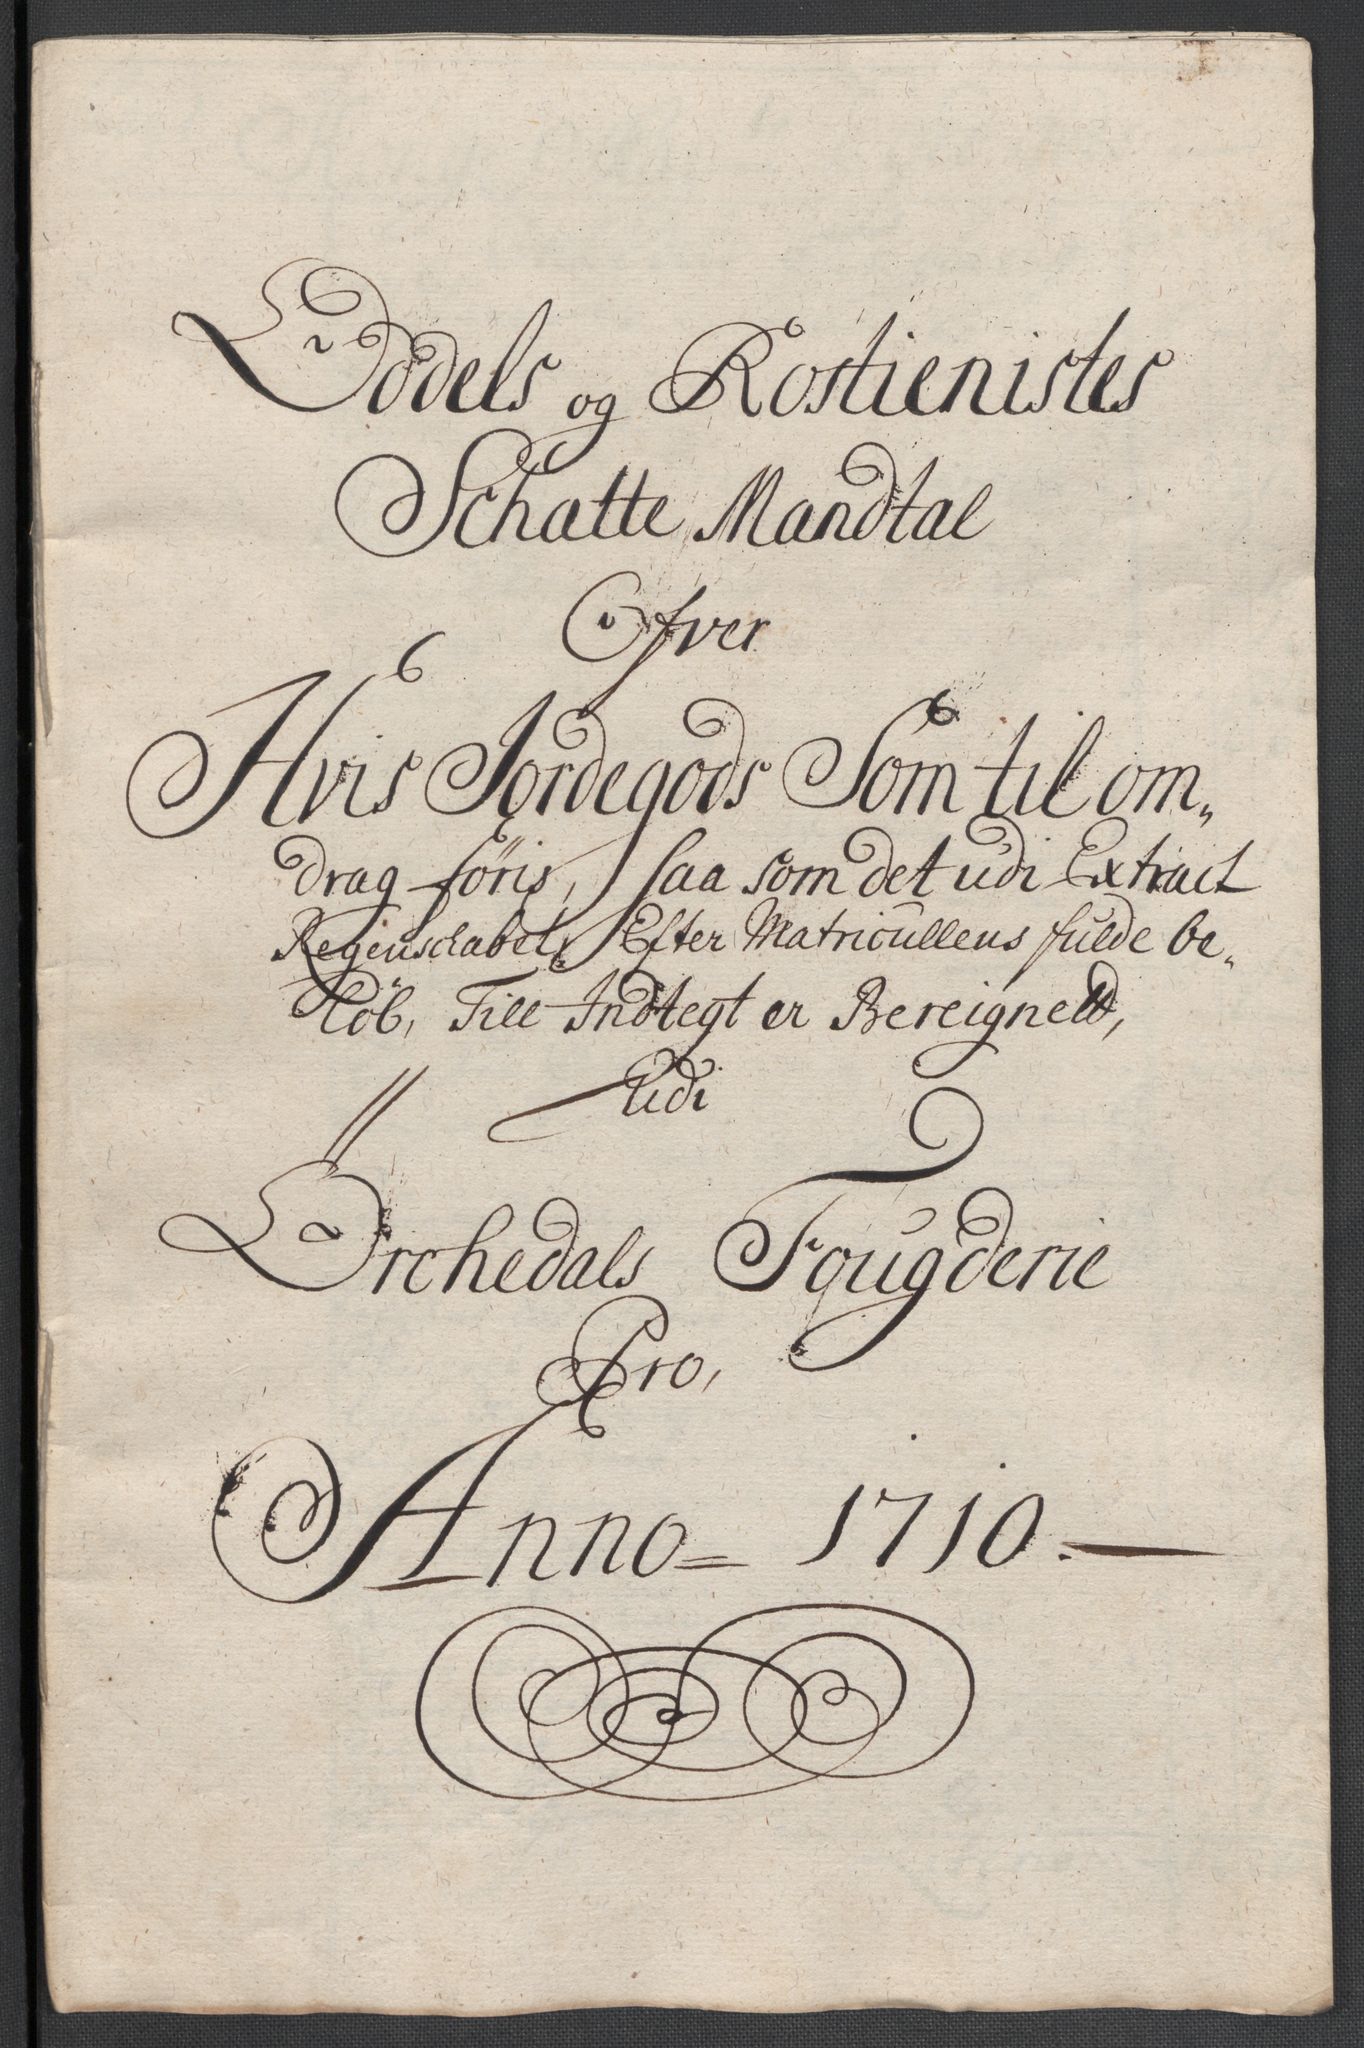 Oodels og Rostienistes
Schatte Mandtal
Ofver
Hvis Jordegods Som til om„
drag föris, saa som det udi Extract
Regenschabet, Efter Matricullens fulde be„
löb, Till Indtegt er Bereignett,
Udi
Örchedals Fougderie
Pro,
Anno = 1710. —